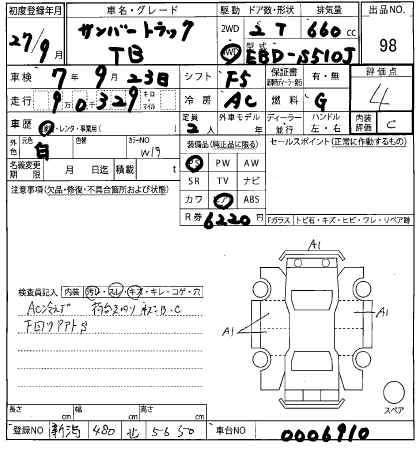 初度登録年月 車名・グレード 駆動 ドア数・形状 排気量 出品NO
27/9月 サンバートラック TB 2WD 4WD 2 T 660cc 98
型式 EBD-S510J
車検 7年9月23日 シフト F5 保証書 有・無 評価点 4
走行 90,329 キロ・マイル 冷房 AC 燃料 G
車歴 レンタ・事業用( ) 定員 2人 外車モデル 年 ディーラー・並行 ハンドル 左・右 内装評価 C
外色 元色 白 色替 カラーNO W19
名義変更期限 月 日迄 積載 t
装備品(純正品に限る) セールスポイント(正常に動作するもの)
PS PW AW
SR TV ナビ
カワ エアB ABS
R券 6220円
Fガラス トビ石・キズ・ヒビ・ワレ・リペア跡
注意事項(欠品・修復・不具合箇所および状態)
検査員記入 内装 汚レ・スレ・キズ・キレ・コゲ・穴
下回リアトS
A1
A1
A1
スペア
長さ cm 幅 cm 高さ cm
登録NO 新潟 480 せ 5650 車台NO 0006910